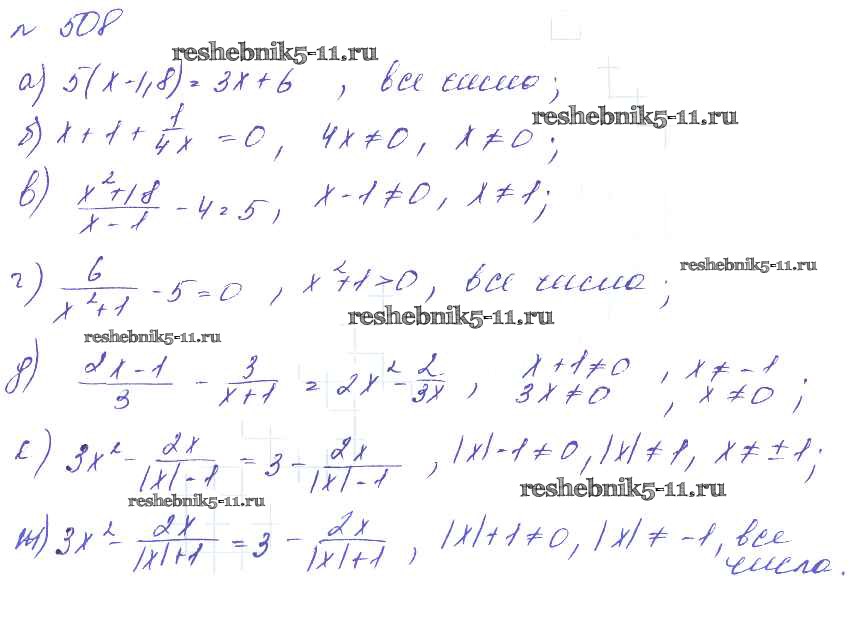 № 508
reshebnik5-11.ru
а) 5(x-1,8) = 3x+6 , все числа;
reshebnik5-11.ru
б) x+1+1/4x =0, 4x≠0, x≠0;
в) x²+18/x-1 -4=5, x-1≠0, x≠1;
reshebnik5-11.ru
г) 6/x²+1 -5=0 , x²+1>0, все числа;
reshebnik5-11.ru
reshebnik5-11.ru
д) 2x-1/3 - 3/x+1 = 2x²-2/3x , x+1≠0 , x≠-1
3x≠0 , x≠0 ;
е) 3x²- 2x/|x|-1 = 3- 2x/|x|-1 , |x|-1≠0, |x|≠1, x≠±1;
reshebnik5-11.ru
reshebnik5-11.ru
ж) 3x²- 2x/|x|+1 = 3 - 2x/|x|+1 , |x|+1≠0, |x|≠ -1, все
числа.